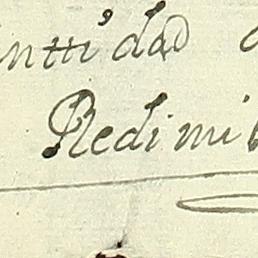 ntti'dad
Redimi